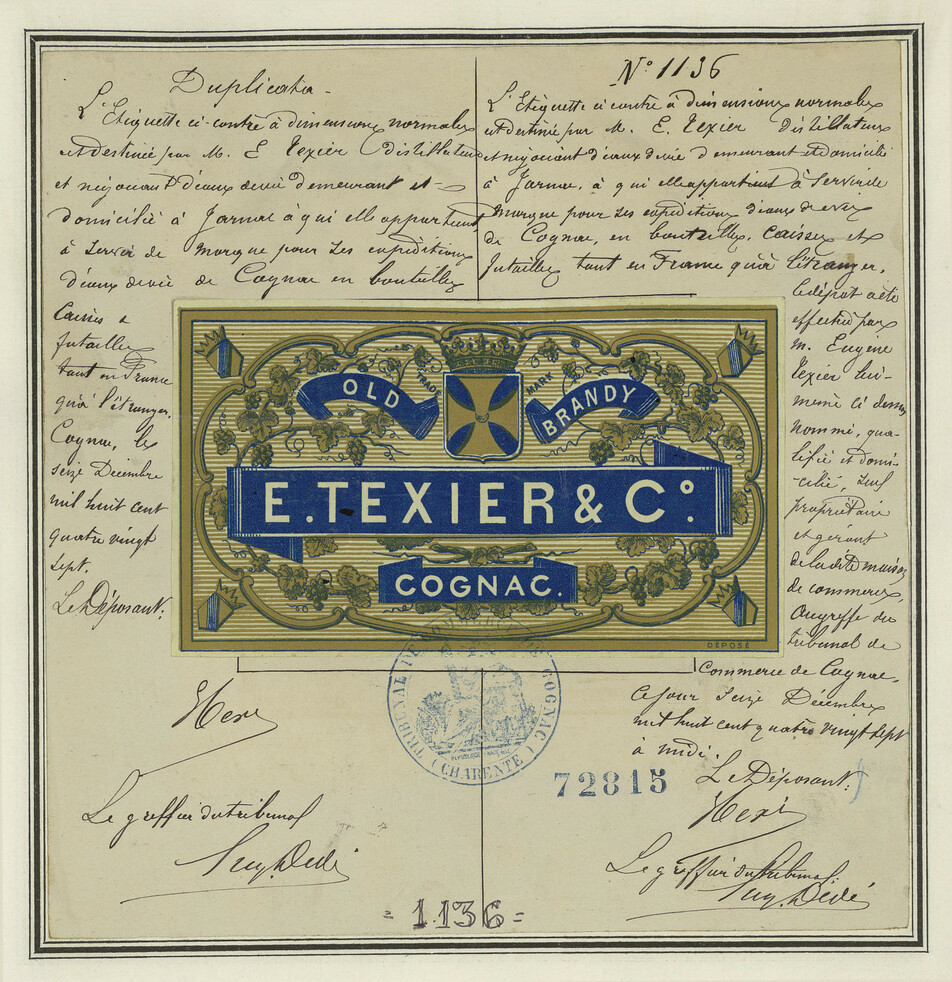 Duplicata -
L'Etiquette ci-contre à dimensions normales
est destinée par M. E Texier distillateur
et négociant d'eaux de vie demeurant et
domicilié à Jarnac à qui elle appartient
à servir de marque pour ses expéditions
d'eaux de vie de Cognac en bouteilles
Caisses e
futailles
tant en France
qu'à l'étranger.
Cognac, le
seize Décembre
mil huit cent
quatre vingt
sept.
Le Déposant.
Le greffier du tribunal
N° 1136
L'Etiquette ci contre à dimensions normales
est destinée par M. E. Texier distillateur
et négociant d'eaux de vie demeurant et domicilié
à Jarnac, à qui elle appartient à servir de
marque pour ses expéditions d'eaux de vie
de Cognac, en bouteilles, caisses et
futailles tant en France qu'à l'étranger,
le dépôt a été
effectué par
M. Eugène
Texier lui-
même ci dessus
nommé, qua-
lifié et domi-
cilié, seul
propriétaire
et gérant
de la dite maison
de commerce,
au greffe du
tribunal de
Commerce de Cognac,
Ce jour seize Décembre
mil huit cent quatre vingt sept
à midi.
Le Déposant:
Le greffier du tribunal:
OLD
TRADE MARK
BRANDY
E. TEXIER & C°.
COGNAC.
DÉPOSÉ
TRIBUNAL DE COMMERCE DE COGNAC
(CHARENTE)
72815
= 1136 =